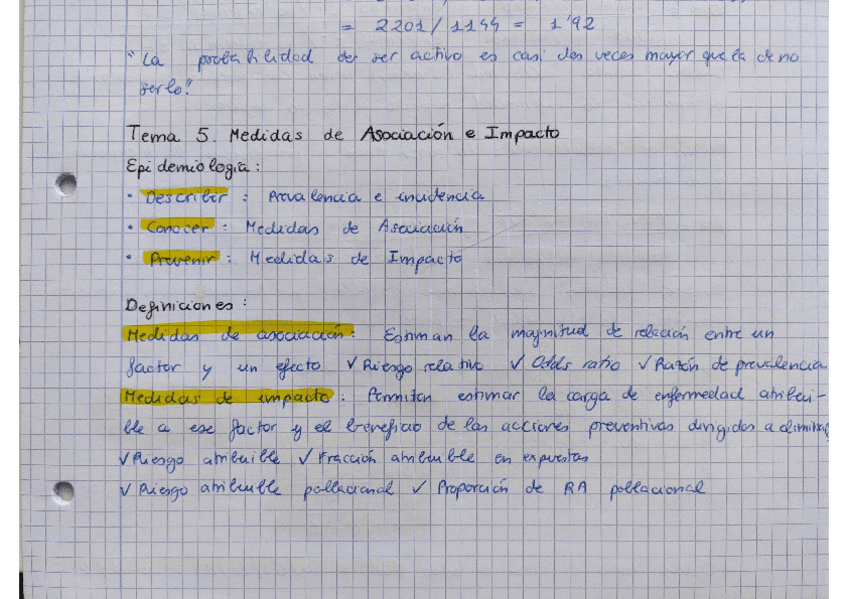 = 2201/1144 = 1'92
"La probabilidad de ser activo es casi dos veces mayor que la de no
serlo"
Tema 5. Medidas de Asociación e Impacto
Epidemiología:
• Describir: Prevalencia e incidencia
• Conocer: Medidas de Asociación
• Prevenir: Medidas de Impacto
Definiciones:
Medidas de asociación: Estiman la magnitud de relación entre un
factor y un efecto ✓Riesgo relativo ✓Odds ratio ✓Razón de prevalencia
Medidas de impacto: Permiten estimar la carga de enfermedad atribui-
ble a ese factor y el beneficio de las acciones preventivas dirigidas a eliminar
✓Riesgo atribuible ✓Fracción atribuible en expuestos
✓Riesgo atribuible poblacional ✓Proporción de RA poblacional